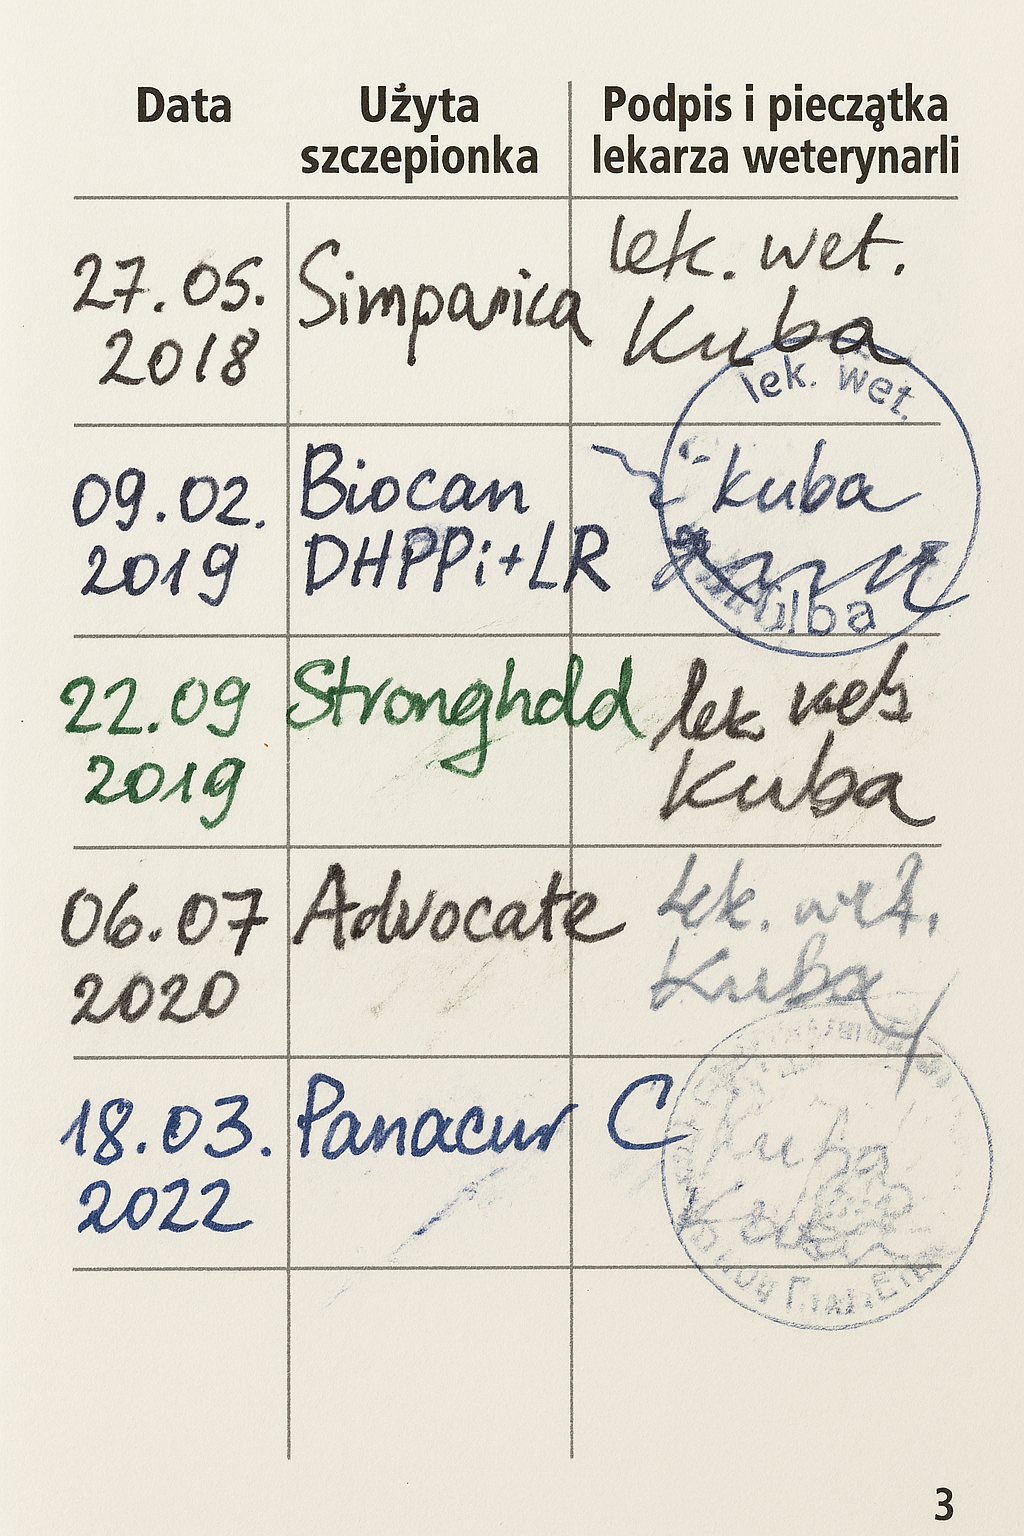 Data
Użyta
szczepionka
Podpis i pieczątka
lekarza weterynarli
27.05.
2018
Simparica
lek. wet.
Kuba
lek. wet.
09.02.
2019
Biocan
DHPPi+LR
kuba
22.09
2019
Stronghold
lek
Kuba
06.07
2020
Advocate
lek.
Kuba
18.03.
2022
Panacur C
3